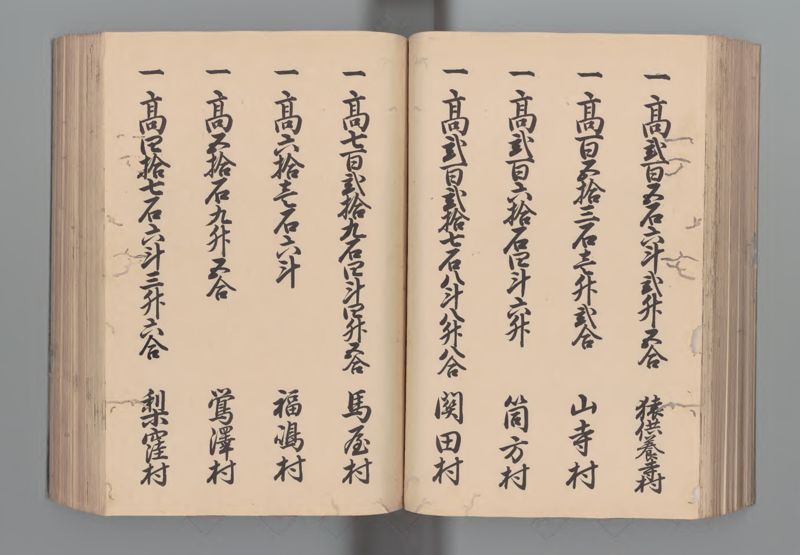 一 高弐百五石六斗弐升五合 猿供養寺村
一 高百五拾三石壱升弐合 山寺村
一 高弐百六拾石四斗六升 筒方村
一 高弐百弐拾七石八斗八升八合 関田村
一 高七百弐拾九石四斗四升五合 馬屋村
一 高六拾壱石六斗 福嶋村
一 高五拾石九升五合 鶯澤村
一 高四拾七石六斗三升六合 梨窪村